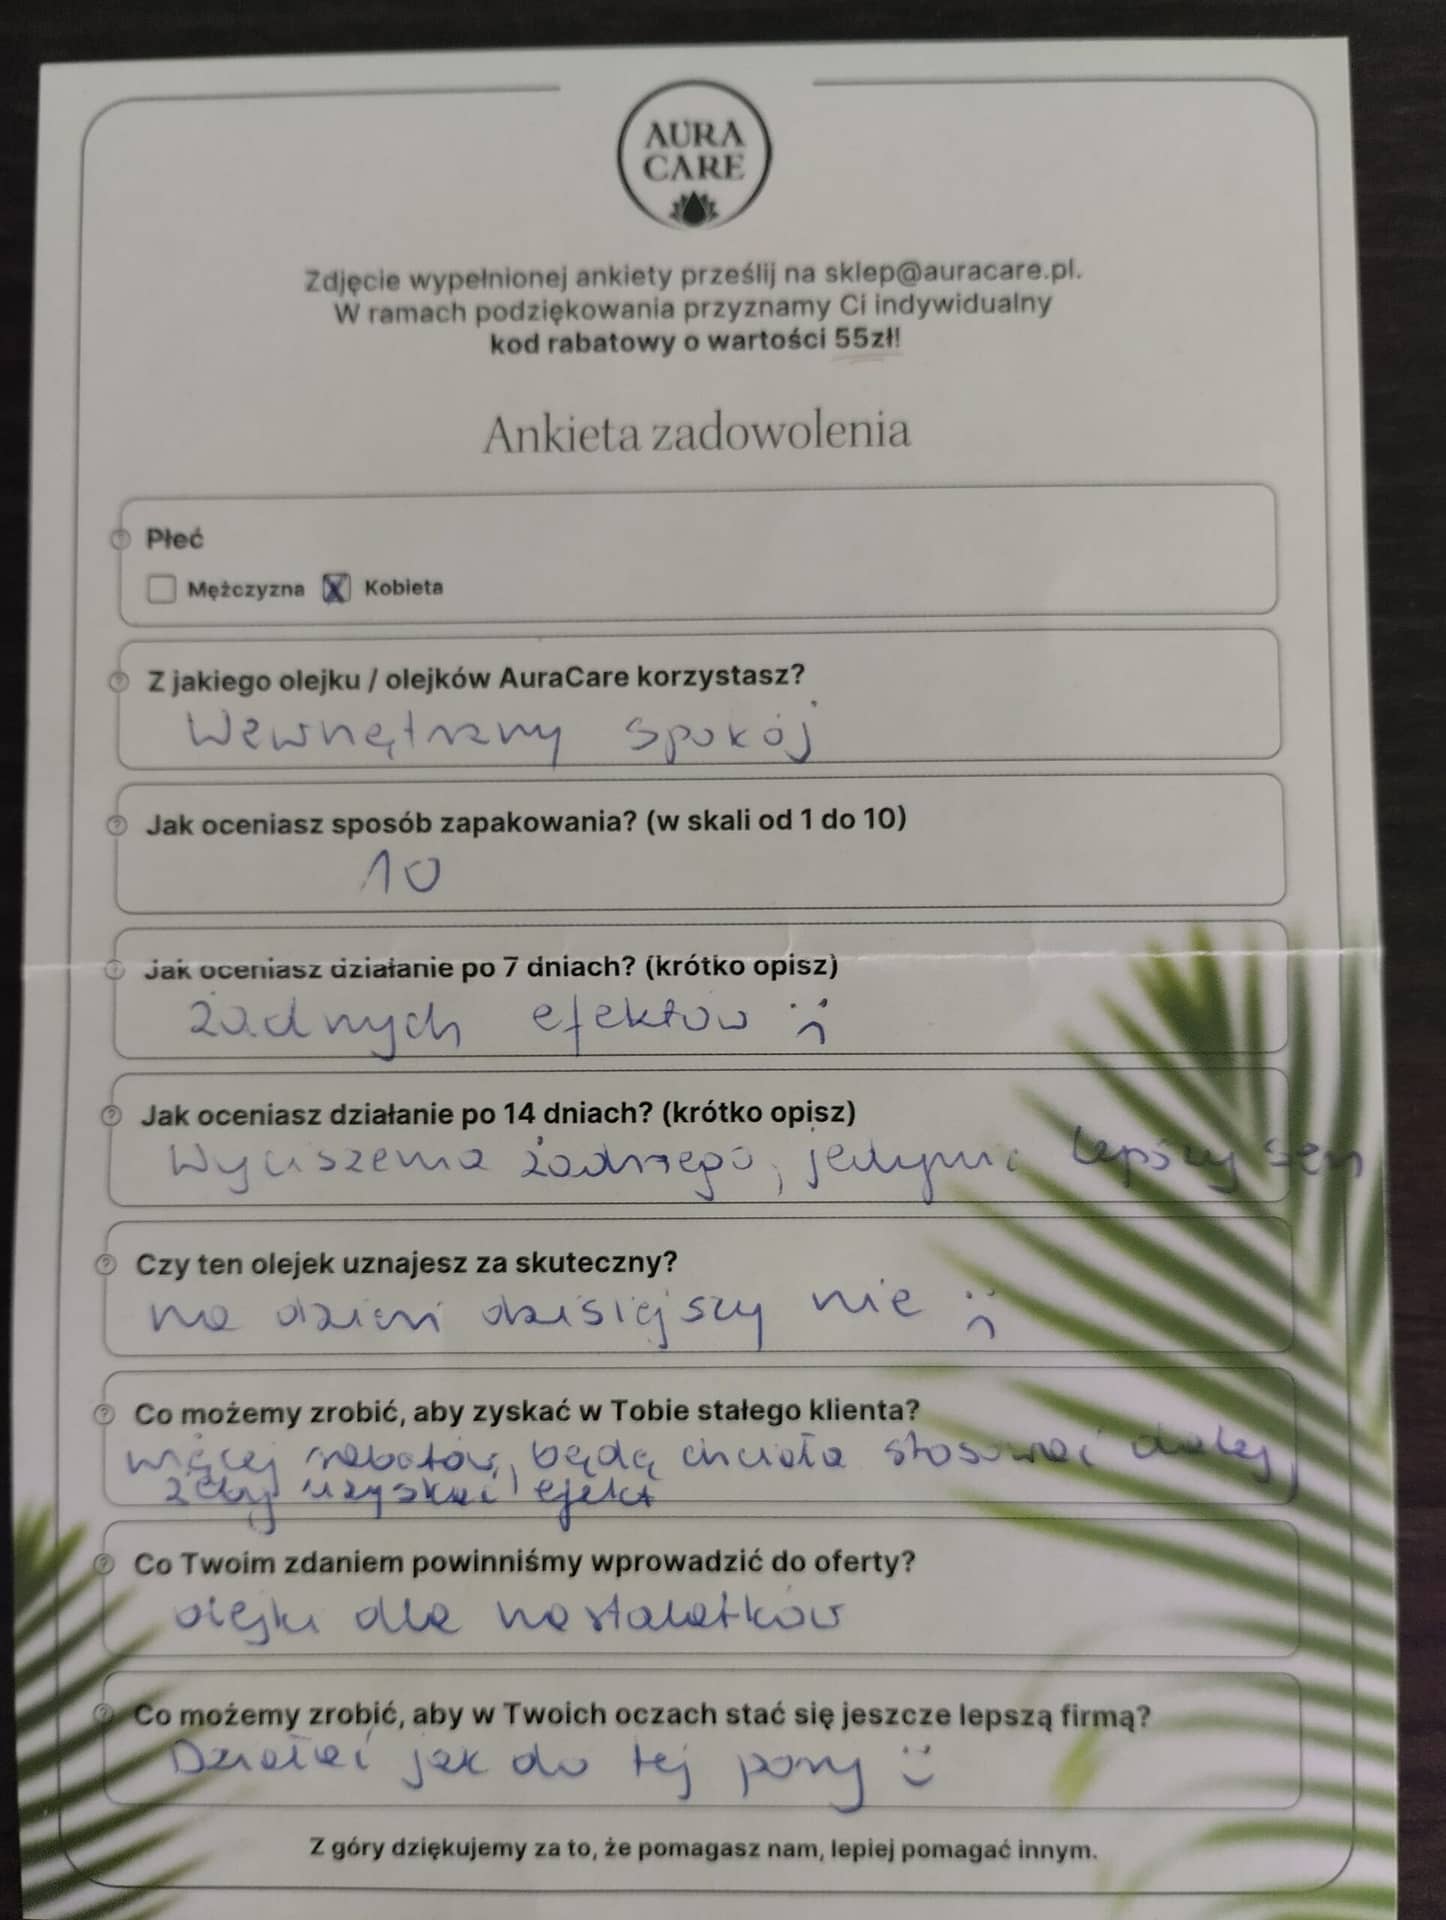 AURA
CARE
Zdjęcie wypełnionej ankiety prześlij na sklep@auracare.pl.
W ramach podziękowania przyznamy Ci indywidualny
kod rabatowy o wartości 55zł!
Ankieta zadowolenia
Płeć
Mężczyzna X Kobieta
Z jakiego olejku / olejków AuraCare korzystasz?
Wewnętrzny spokój
Jak oceniasz sposób zapakowania? (w skali od 1 do 10)
10
Jak oceniasz działanie po 7 dniach? (krótko opisz)
żadnych efektów :(
Jak oceniasz działanie po 14 dniach? (krótko opisz)
Wyciszenia żadnego, jedynie lepszy sen
Czy ten olejek uznajesz za skuteczny?
na dzień dzisiejszy nie :(
Co możemy zrobić, aby zyskać w Tobie stałego klienta?
więcej rabatów, będę chciała stosować dalej,
żeby uzyskać efekt
Co Twoim zdaniem powinniśmy wprowadzić do oferty?
olejki dla nastolatków
Co możemy zrobić, aby w Twoich oczach stać się jeszcze lepszą firmą?
Działać jak do tej pory :)
Z góry dziękujemy za to, że pomagasz nam, lepiej pomagać innym.